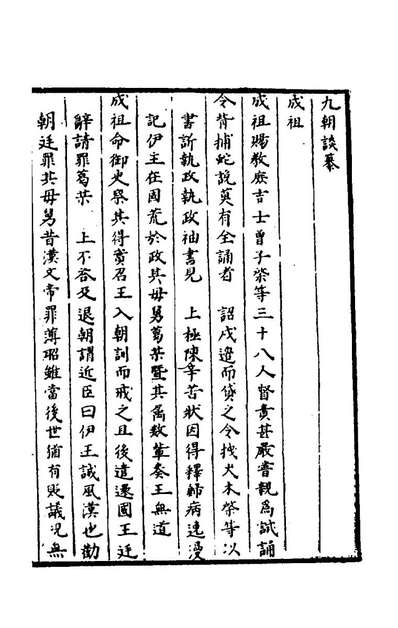 九朝談纂
成祖
成祖賜教庶吉士曾子棨等三十八人督責甚嚴嘗親爲試誦
令背捕蛇說莫有全誦者　詔戍邊而貸之令拽大木棨等以
書訴執政執政袖書見　上極陳辛苦狀因得釋歸病逸漫
記伊王在國荒於政其母舅葛某暨其屬数輩奏王無道
成祖命御史祭其得實召王入朝訓而戒之且後遣還國王廷
辭請罪葛某　上不答及退朝謂近臣曰伊王誠風漢也勸
朝廷罪其母舅昔漢文帝罪薄昭雖當後世猶有貶議況無